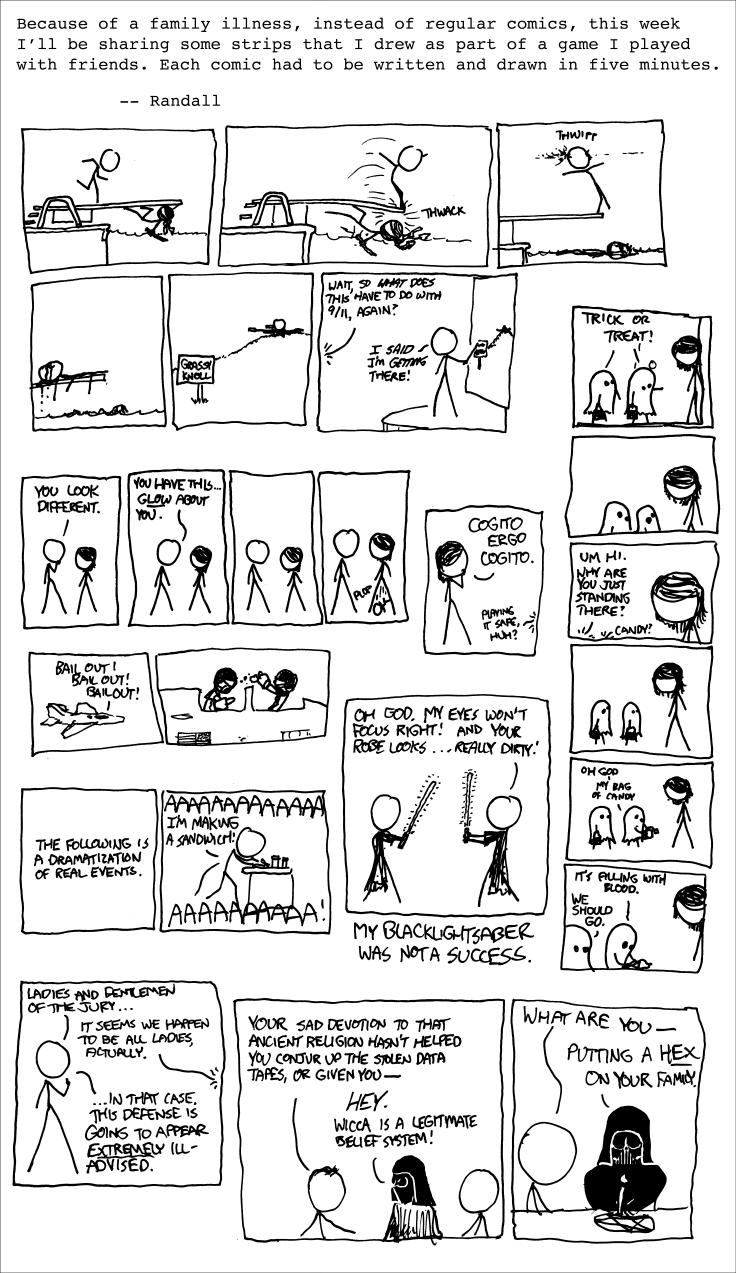 Because of a family illness, instead of regular comics, this week
I'll be sharing some strips that I drew as part of a game I played
with friends. Each comic had to be written and drawn in five minutes.
-- Randall
THWACK
THWIPP
GRASSY
KNOLL
WAIT, SO WHAT DOES
THIS HAVE TO DO WITH
9/11, AGAIN?
I SAID
I'M GETTING
THERE!
TRICK OR
TREAT!
UM HI.
WHY ARE
YOU JUST
STANDING
THERE?
CANDY?
OH GOD
MY BAG
OF CANDY
IT'S FILLING WITH
BLOOD.
WE
SHOULD
GO.
YOU LOOK
DIFFERENT.
YOU HAVE THIS...
GLOW ABOUT
YOU.
PLOP
COGITO
ERGO
COGITO.
PLAYING
IT SAFE,
HUH?
BAIL OUT!
BAIL OUT!
BAILOUT!
OH GOD, MY EYES WON'T
FOCUS RIGHT! AND YOUR
ROBE LOOKS ...REALLY DIRTY!
MY BLACKLIGHTSABER
WAS NOT A SUCCESS.
THE FOLLOWING IS
A DRAMATIZATION
OF REAL EVENTS.
AAAAAAAAAAAA
I'M MAKING
A SANDWICH!
AAAAAAAAAA!
LADIES AND GENTLEMEN
OF THE JURY...
IT SEEMS WE HAPPEN
TO BE ALL LADIES,
ACTUALLY.
...IN THAT CASE,
THIS DEFENSE IS
GOING TO APPEAR
EXTREMELY ILL-
ADVISED.
YOUR SAD DEVOTION TO THAT
ANCIENT RELIGION HASN'T HELPED
YOU CONJUR UP THE STOLEN DATA
TAPES, OR GIVEN YOU—
HEY.
WICCA IS A LEGITIMATE
BELIEF SYSTEM!
WHAT ARE YOU—
PUTTING A HEX
ON YOUR FAMILY.